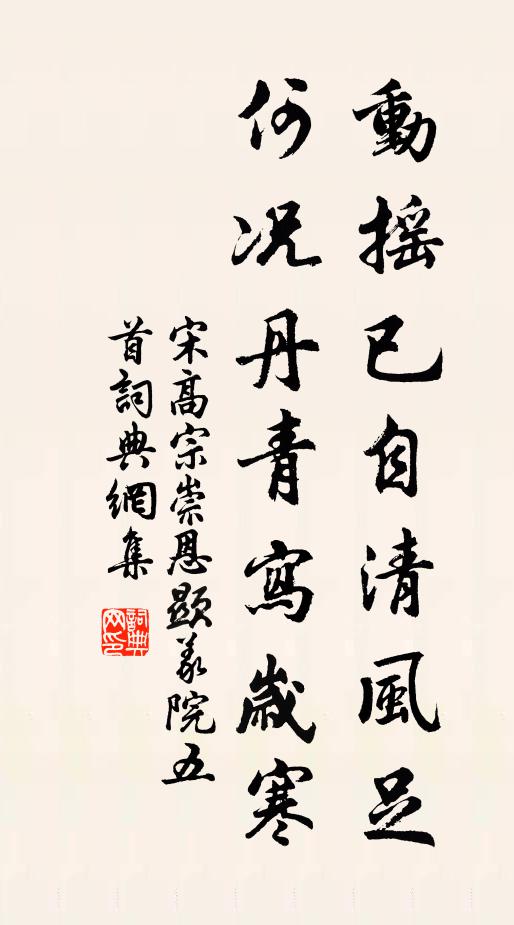 動搖已自清風足
何况丹青寫歲寒
宋高宗崇恩顯義院五
首詞典網集
詞典
網印